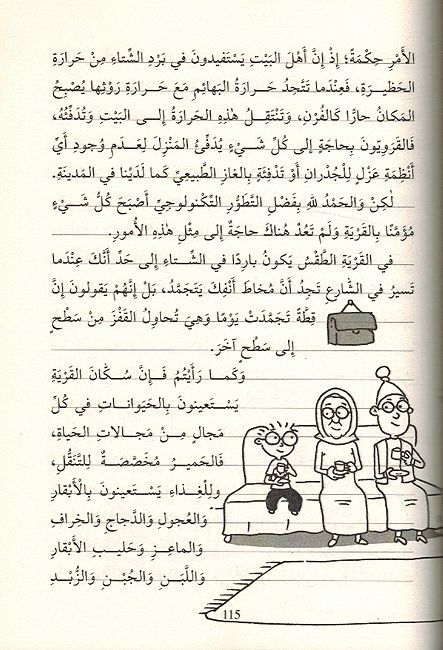 الأَمْرِ حِكْمَةٌ؛ إِذْ إِنَّ أَهْلَ البَيْتِ يَسْتَفيدونَ في بَرْدِ الشِّتاءِ مِنْ حَرارَةِ
الحَظيـرَةِ، فَعِنْدَما تَتَّحِدُ حَـرارَةُ البَهائِمِ مَعَ حَـرارَةِ رَوْثِها يُصْبِحُ
المَكانُ حارًّا كَالفُرْنِ، وَتَنْتَقِـلُ هٰذِهِ الحَرارَةُ إِلـى البَيْتِ وَتُدَفِّئُهُ،
فَالقَرَوِيّونَ بِحاجَةٍ إِلى كُلِّ شَـيْءٍ يُدَفِّئُ المَنْزِلَ لِعَـدَمِ وُجودِ أَيِّ
أَنْظِمَةِ عَزْلٍ لِلْجُدْرانِ أَوْ تَدْفِئَةٍ بِالغازِ الطَّبيعِيِّ كَما لَدَيْنا في المَدينَةِ.
لٰكِنْ وَالحَمْدُ لِلهِ بِفَضْلِ التَّطَوُّرِ التِّكْنولوجِيِّ أَصْبَحَ كُلُّ شَـيْءٍ
مُؤَمَّنًا بِالقَرْيَةِ وَلَمْ تَعُدْ هُناكَ حاجَةٌ إِلى مِثْلِ هٰذِهِ الأُمورِ.
في القَرْيَةِ الطَّقْسُ يَكونُ بارِدًا في الشِّـتاءِ إِلى حَدِّ أَنَّكَ عِنْدَما
تَسيرُ في الشّارِعِ تَجِدُ أَنَّ مُخاطَ أَنْفِكَ يَتَجَمَّدُ، بَلْ إِنَّهُمْ يَقولونَ إِنَّ
قِطَّةً تَجَمَّدَتْ يَوْمًا وَهِيَ تُحاوِلُ القَفْزَ مِنْ سَطْحٍ
إِلى سَطْحٍ آخَرَ.
وَكَمـا رَأَيْتُمْ فَـإِنَّ سُـكّانَ القَرْيَةِ
يَسْـتَعينونَ بِالحَيَوانـاتِ في كُلِّ
مَجالٍ مِـنْ مَجـالاتِ الحَياةِ،
فَالحَميـرُ مُخَصَّصَـةٌ لِلتَّنَقُّلِ،
ولِلْغِـذاءِ يَسْـتَعينونَ بِالأَبْقارِ
وَالعُجولِ وَالدَّجاجِ وَالخِرافِ
وَالماعِـزِ وَحَليـبِ الأَبْقارِ
وَاللَّبَـنِ وَالجُبْـنِ وَالزُّبْـدِ
115